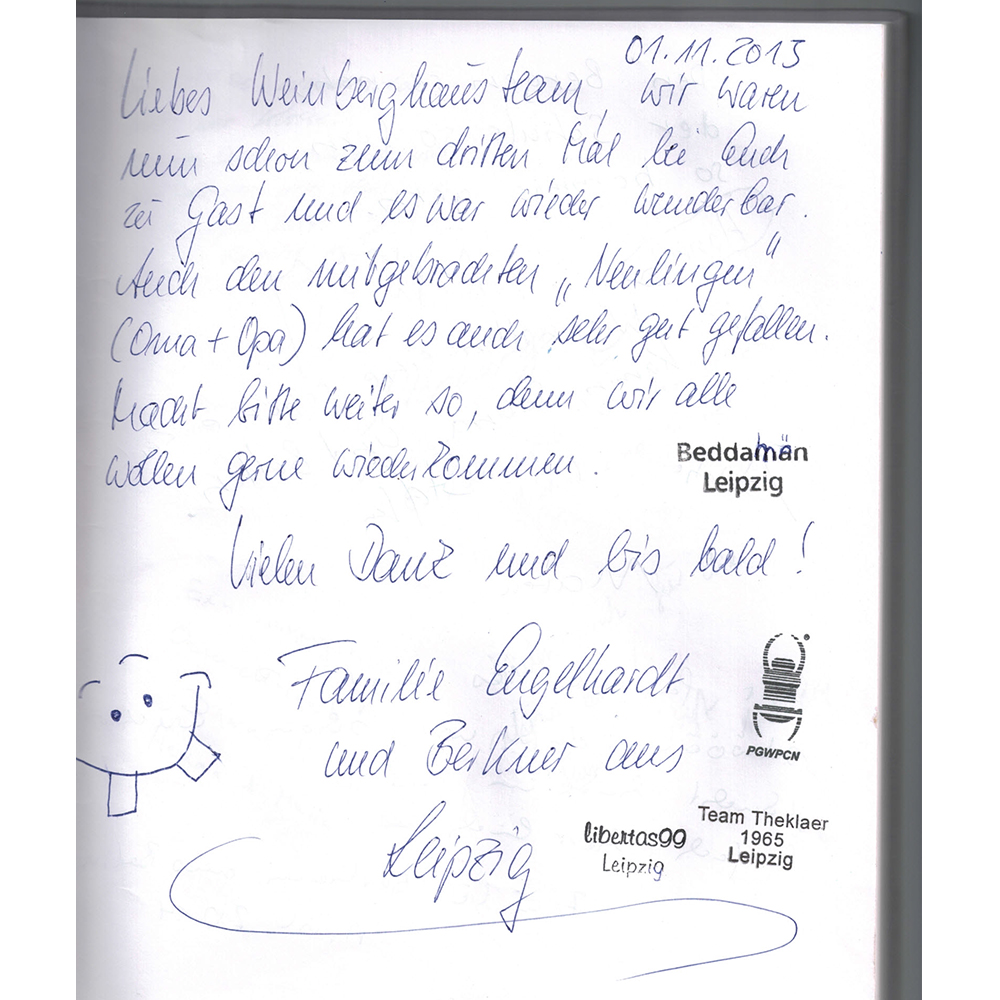 01.11.2013
Liebes Weinberghausteam, wir waren
nun schon zum dritten Mal bei Euch
zu Gast und es war wieder wunderbar.
Auch den mitgebrachten „Neulingen“
(Oma + Opa) hat es auch sehr gut gefallen.
Macht bitte weiter so, denn wir alle
wollen gerne wiederkommen.
Beddamän
Leipzig
Vielen Dank und bis bald!
Familie Engelhardt
und Berkner aus
Leipzig
PGWPCN
libertas99
Leipzig
Team Theklaer
1965
Leipzig